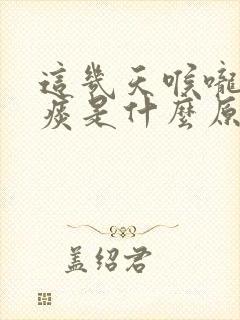 這幾天喉嚨
痰是什麼原
蓋紹君